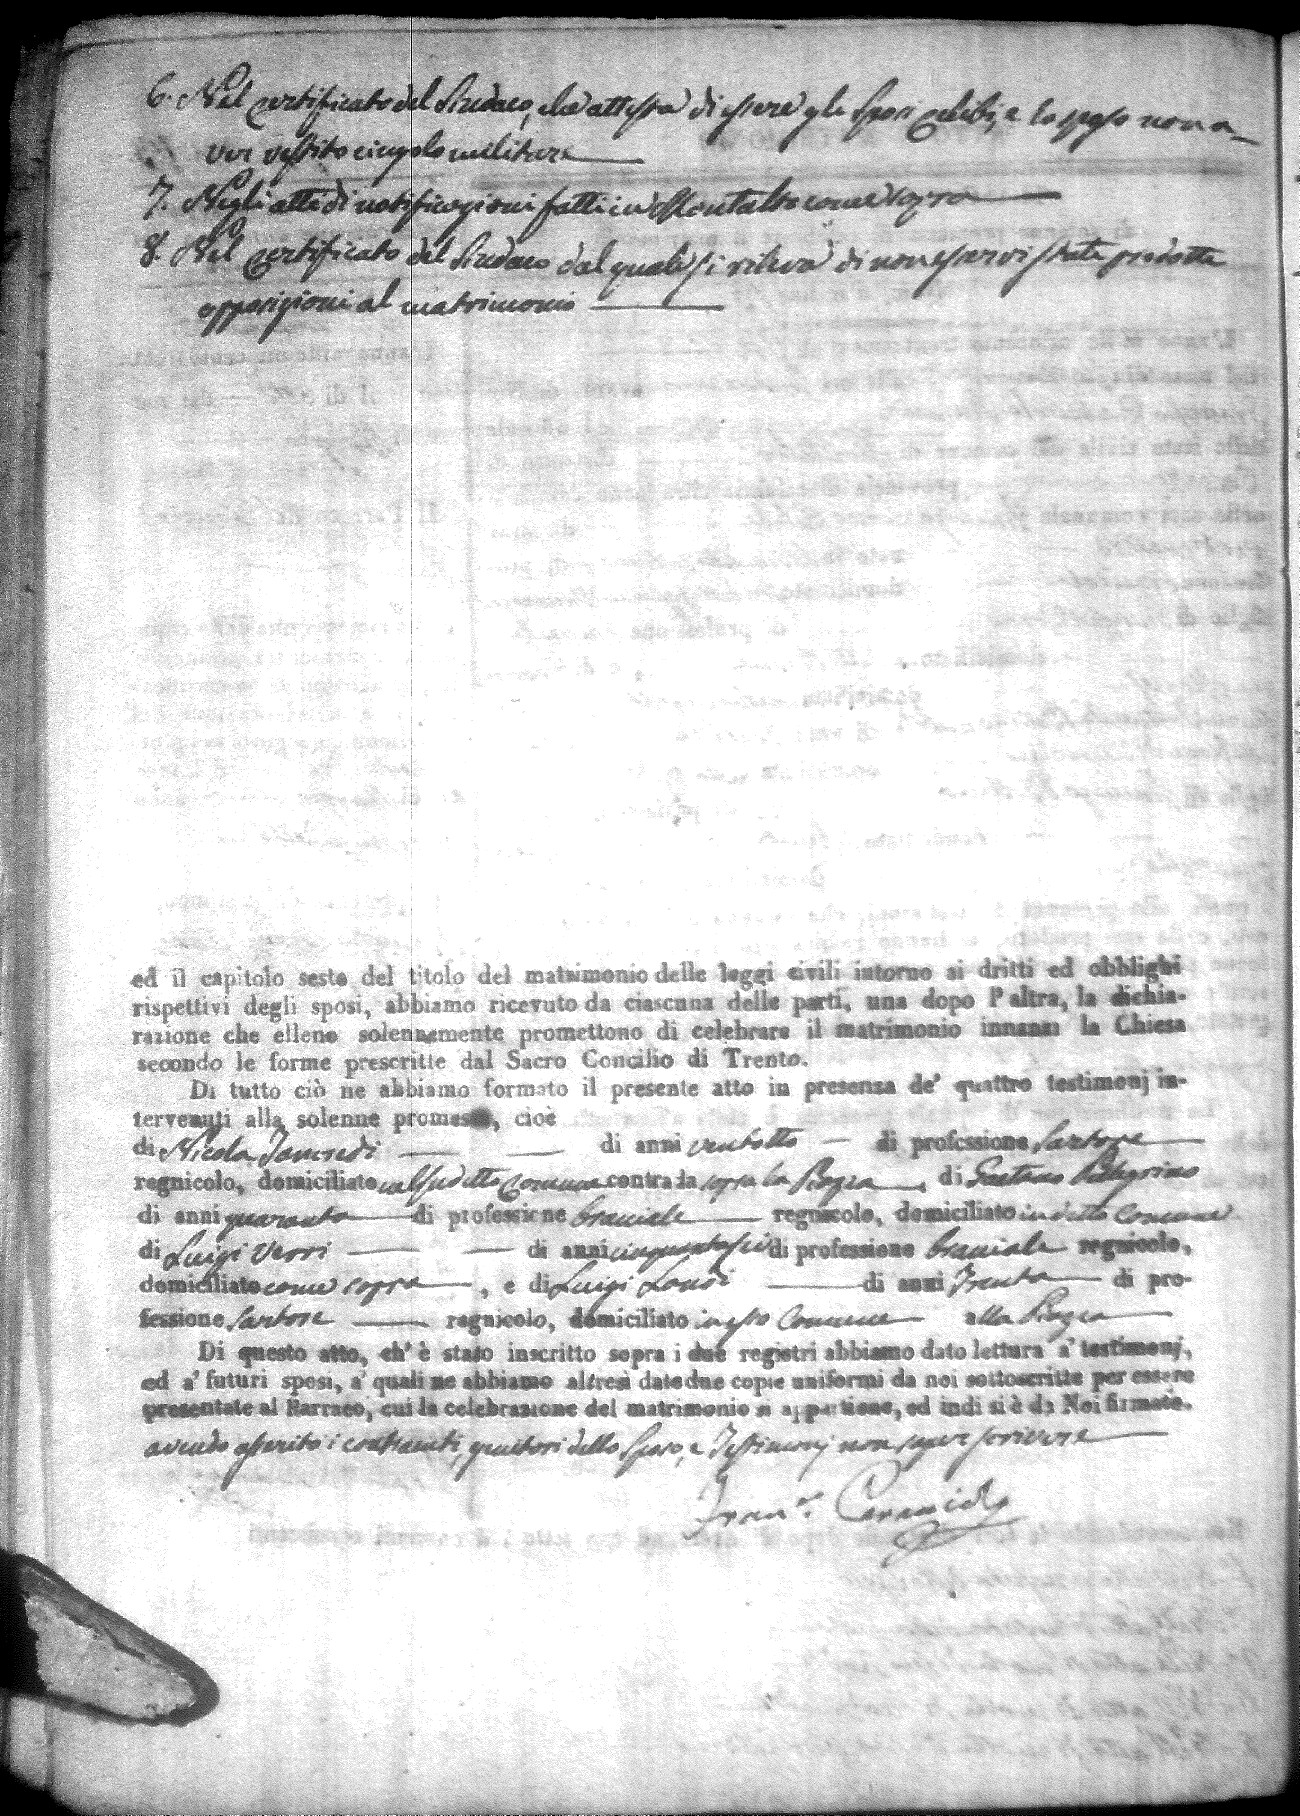 6. Nel certificato del Sindaco, che attesta di essere gli Sposi celibi, e lo sposo non a-
ver vestito cingolo militare
7. Negli atti di notificazioni fatti in Montalto come sopra
8. Nel certificato del Sindaco dal quale si rileva di non esservi state prodotte
opposizioni al matrimonio
ed il capitolo sesto del titolo del matrimonio delle leggi civili intorno ai dritti ed obblighi
rispettivi degli sposi, abbiamo ricevuto da ciascuna delle parti, una dopo l'altra, la dichia-
razione che elleno solennemente promettono di celebrare il matrimonio innanzi la Chiesa
secondo le forme prescritte dal Sacro Concilio di Trento.
Di tutto ciò ne abbiamo formato il presente atto in presenza de' quattro testimonj in-
tervenuti alla solenne promessa, cioè
di Nicola di anni ventotto di professione Sartore
regnicolo, domiciliato nel suddetto Comune contrada sopra la di Gaetano Pellegrino
di anni quaranta di professione bracciale regnicolo, domiciliato in detto Comune
di Luigi Verri di anni cinquantasei di professione bracciale regnicolo,
domiciliato come sopra, e di Luigi di anni Trenta di pro-
fessione Sartore regnicolo, domiciliato in esso Comune alla
Di questo atto, ch' è stato inscritto sopra i due registri abbiamo dato lettura a' testimonj,
ed a' futuri sposi, a' quali ne abbiamo altresì date due copie uniformi da noi sottoscritte per essere
presentate al Parroco, cui la celebrazione del matrimonio si appartiene, ed indi si è da Noi firmato.
avendo asserito i contraenti, genitori dello Sposo, e Testimonj non saper scrivere